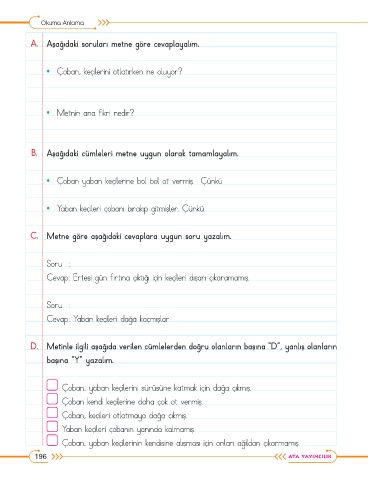 Okuma Anlama
A. Aşağıdaki soruları metne göre cevaplayalım.
• Çoban, keçilerini otlatırken ne oluyor?
• Metnin ana fikri nedir?
B. Aşağıdaki cümleleri metne uygun olarak tamamlayalım.
• Çoban yaban keçilerine bol bol ot vermiş. Çünkü
• Yaban keçileri çobanı bırakıp gitmişler. Çünkü
C. Metne göre aşağıdaki cevaplara uygun soru yazalım.
Soru :
Cevap: Ertesi gün fırtına çıktığı için keçileri dışarı çıkaramamış.
Soru :
Cevap: Yaban keçileri dağa kaçmışlar.
D. Metinle ilgili aşağıda verilen cümlelerden doğru olanların başına "D", yanlış olanların
başına "Y" yazalım.
Çoban, yaban keçilerini sürüsüne katmak için dağa çıkmış.
Çoban kendi keçilerine daha çok ot vermiş.
Çoban, keçileri otlatmaya dağa çıkmış.
Yaban keçileri çobanın yanında kalmamış.
Çoban, yaban keçilerinin kendisine alışması için onları ağıldan çıkarmamış.
196
ATA YAYINCILIK